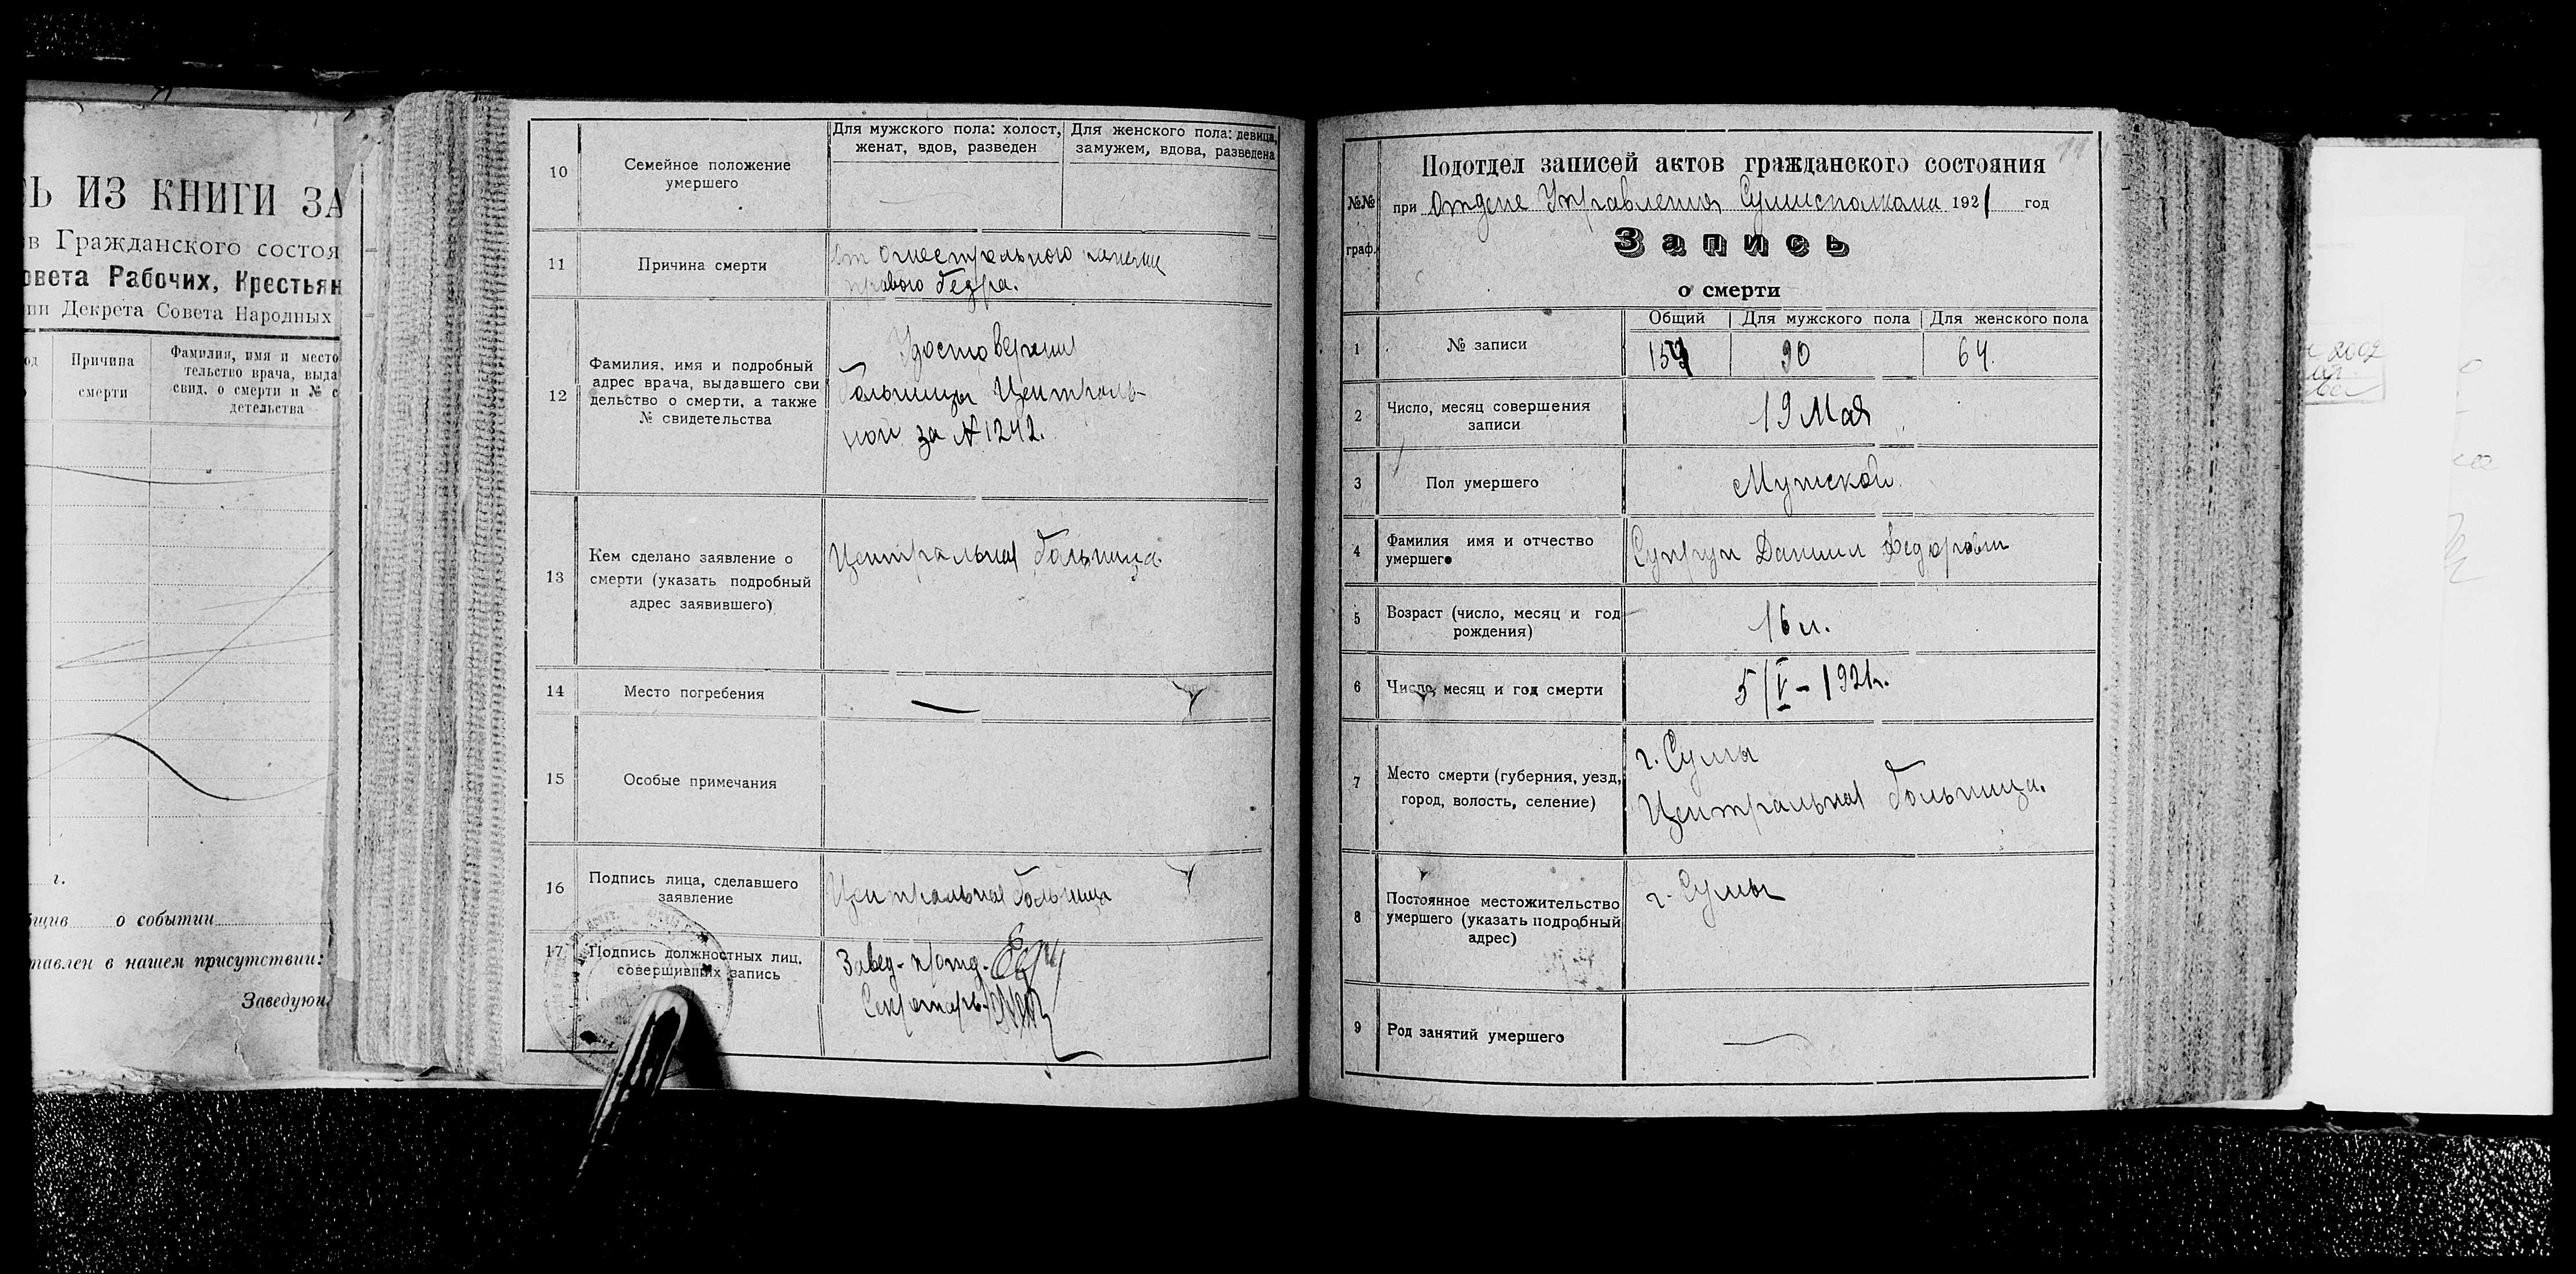 Ь ИЗ КНИГИ ЗА
в Гражданского состоя
овета Рабочих, Крестьян
ии Декрета Совета Народных
од
Причина
смерти
Фамилия, имя и место
тельство врача, выда
свид. о смерти и № с
детельства
г.
бщив о событии
тавлен в нашем присутствии:
Заведующ
10
Семейное положение
умершего
Для мужского пола: холост,
женат, вдов, разведен
Для женского пола: девица,
замужем, вдова, разведена
11
Причина смерти
от огнестрельного
правого бедра.
12
Фамилия, имя и подробный
адрес врача, выдавшего сви
дельство о смерти, а также
№ свидетельства
Удостоверения
больницы Централь-
ной за № 1242.
13
Кем сделано заявление о
смерти (указать подробный
адрес заявившего)
Центральная больница
14
Место погребения
15
Особые примечания
16
Подпись лица, сделавшего
заявление
Центральная больница
17
Подпись должностных лиц,
совершивших запись
Завед. п/отд.
Секретарь
№№
граф.
Подотдел записей актов гражданского состояния
при Отделе Управления Сумисполкома 1921 год
Запись
о смерти
1
№ записи
Общий
Для мужского пола
Для женского пола
90
64.
2
Число, месяц совершения
записи
19 Мая
3
Пол умершего
Мужской
4
Фамилия имя и отчество
умершего
Супрун Даниил Федорович
5
Возраст (число, месяц и год
рождения)
16 л.
6
Число, месяц и год смерти
5/V - 1921 г.
7
Место смерти (губерния, уезд,
город, волость, селение)
г. Сумы
Центральная больница.
8
Постоянное местожительство
умершего (указать подробный
адрес)
г. Сумы
9
Род занятий умершего
2002